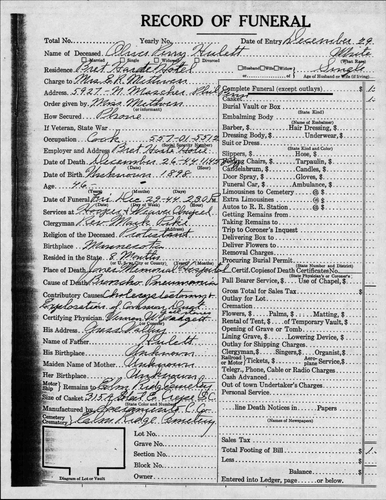 RECORD OF FUNERAL
Total No. Yearly No. Date of Entry December 29
Name of Deceased Oliver Perry Hulett White
Married Single Widower Divorced (What Race)
Residence Bret Harte Hotel Husband/Wife/Widow Single
Charge to Mrs. E. R. Methven Age of Husband or Wife (if living)
Address 5927 N. Mascher Phil Penn
Order given by Mrs. Methven
How Secured Phone
If Veteran, State War
Occupation Cook 557-01-5512
Employer and Address Bret Harte Hotel
Date of Death December 26-44 11:45
Date of Birth Unknown 1898
Age 46
(Years) (Months) (Days)
Date of Funeral Fri Dec 29-44 2:30 PM
Services at Hooper & Weaver Chapel
Clergyman Rev. Mark
Religion of the Deceased Protestant
Birthplace Minnesota
Resided in the State 8 Months
Place of Death Jones Memorial Hospital
Cause of Death Broncho Pneumonia
Contributory Causes
Exploration of Common Duct
Certifying Physician Vernon W. Padgett
His Address Grass Valley
Name of Father Hulett
His Birthplace Unknown
Maiden Name of Mother Unknown
Her Birthplace Unknown
Motor Ship Remains to Elm Ridge Cemetery
Size of Casket
Manufactured by Sacramento C. Co.
Cemetery Crematory Elm Ridge Cemetery
Lot No.
Grave No.
Section No.
Block No.
Owner
Diagram of Lot or Vault
Complete Funeral (except outlays) $
Casket
Burial Vault or Box
(State Kind)
Embalming Body
(Name of Embalmer)
Barber, $ Hair Dressing, $
Dressing Body, $ Underwear, $
Suit or Dress
(State Kind and Color)
Slippers, $ Hose, $
Folding Chairs, $ Tarpaulin, $
Candelabrum, $ Candles, $
Door Spray, $ Gloves, $
Funeral Car, $ Ambulance, $
Limousines to Cemetery @ $
Extra Limousines @ $
Autos to R. R. Station @ $
Getting Remains from
Taking Remains to
Trip to Coroner's Inquest
Delivering Box to
Deliver Flowers to
Removal Charges
Procuring Burial Permit
(State Number and District)
Certif. Copies of Death Certificates No.
(State Physician's or Coroner's)
Pall Bearer Service, $ Use of Chapel, $
Gross Total for Sales Tax $
Outlay for Lot
Cremation
Flowers, $ Palms, $ Matting, $
Rental of Tent, $ of Temporary Vault, $
Opening of Grave or Tomb
Lining Grave, $ Lowering Device, $
Outlay for Shipping Charges
Clergyman, $ Singers, $ Organist, $
Railroad Motor Tickets, $ Aeroplane Service, $
Telegr., Phone, Cable or Radio Charges
Cash Advanced
Out of town Undertaker's Charges
Personal Service
line Death Notices in Papers
(Names of Newspapers)
Sales Tax
Total Footing of Bill $
Less
Balance $
Entered into Ledger, page or below.